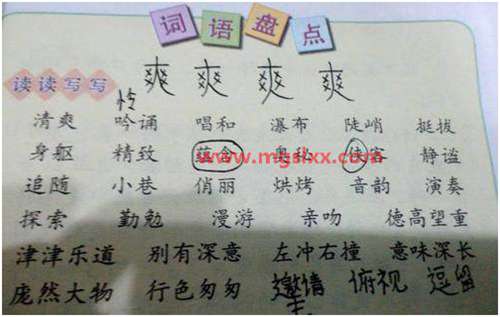 词语盘点
爽 爽 爽 爽
读读写写
怜
清爽 吟诵 唱和 瀑布 陡峭 挺拔
身躯 精致 蕴含 奥秘 侠客 静谧
www.mgslxx.com
追随 小巷 俏丽 烘烤 音韵 演奏
探索 勤勉 漫游 亲吻 德高望重
津津乐道 别有深意 左冲右撞 意味深长
庞然大物 行色匆匆 邀请 俯视 逗留